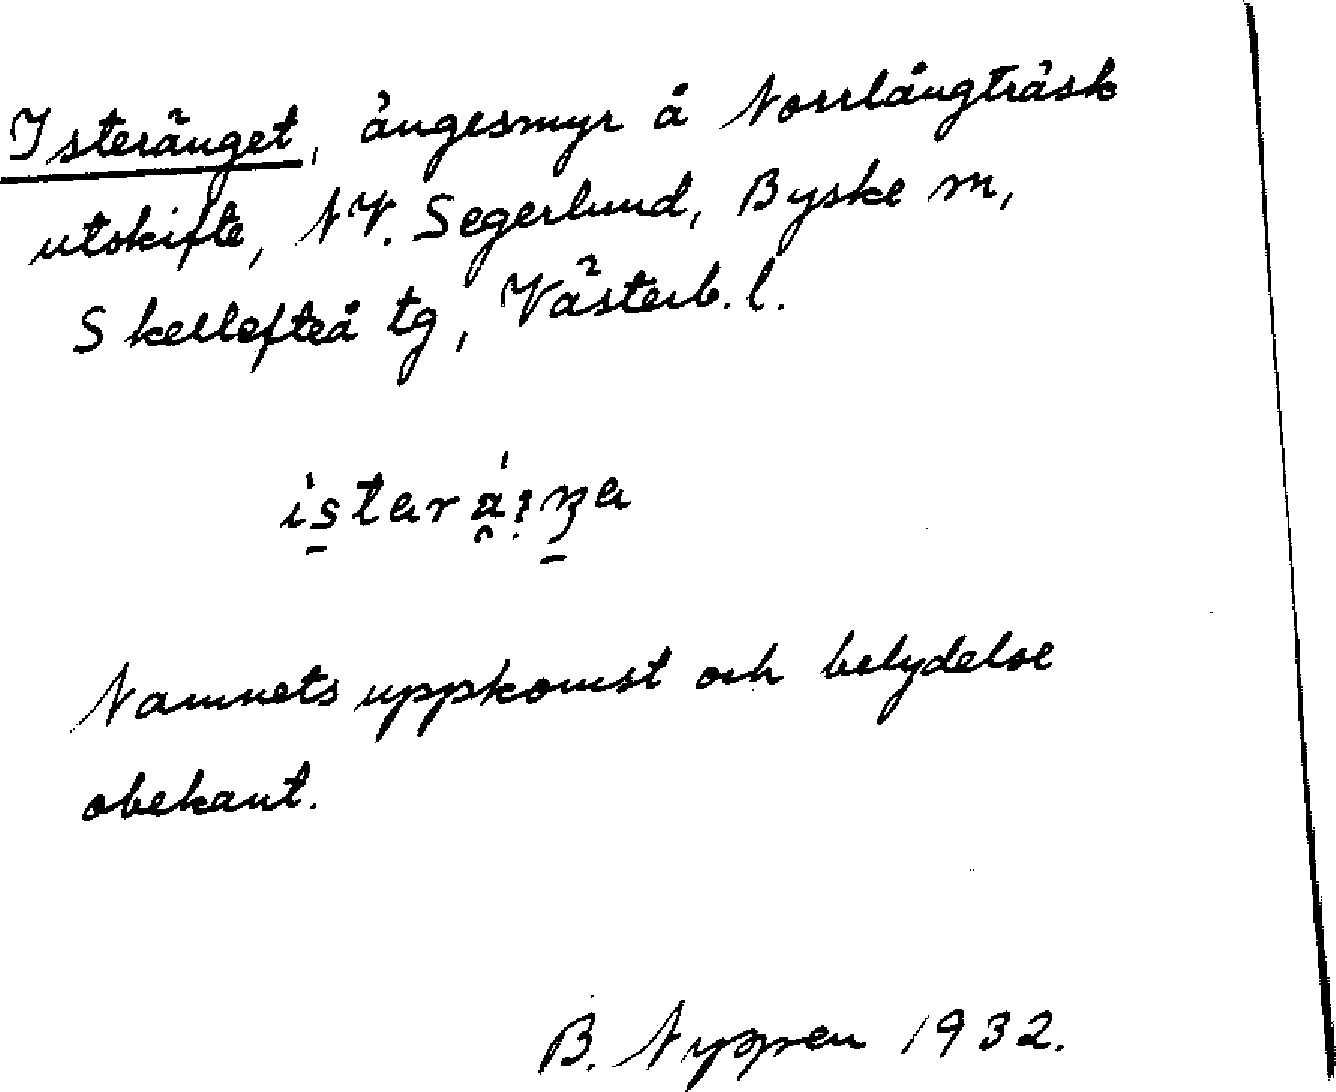 Isteränget, ängesmyr å Norrlångträsk
utskifte, NV. Segerlund, Byske sn,
Skellefteå tg, Västerb. l.
Namnets uppkomst och betydelse
obekant.
B. Nyppen 1932.